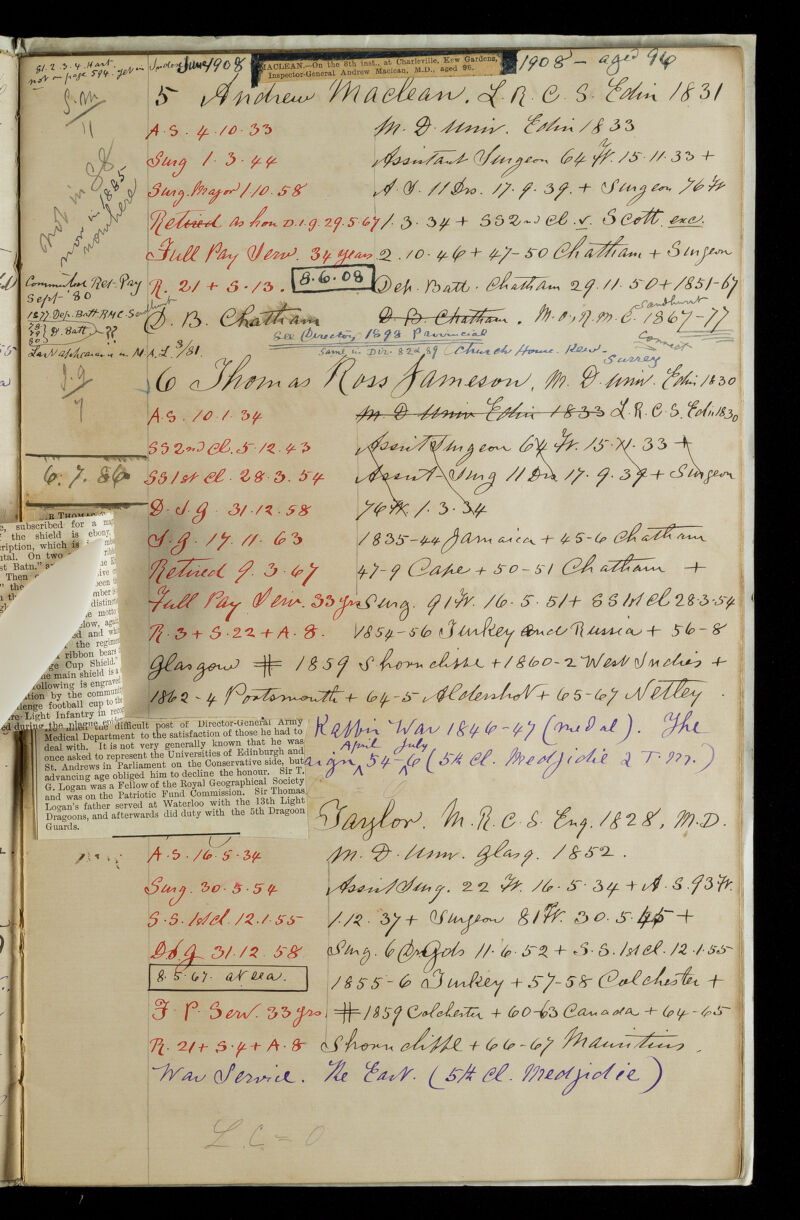 81. 2. 3. 4. Hart
not on page 594. yet in
June 1908
MACLEAN.—On the 8th inst., at Charleville, Kew Gardens,
Inspector-General Andrew Maclean, M.D., aged 96.
1908 - aged 96
5 Andrew Maclean. L. R. C. S. Edin 1831
A. S. 4. 10. 33
M. D. Univ. Edin 1833
Surg 1. 3. 44
Assistant Surgeon 64 Ft. 15. 11. 33 +
Surg. Major 1 10. 58
A. S. 11 Drs. 17. 9. 39. + Surgeon 76 Ft
not in 68
nor in 1885
nowhere
Retired as hon D. I. G. 29. 5. 67
1. 3. 34 + SS 2nd Cl. v. Scott. exc.
Full Pay Serv. 34 years
2. 10. 46 + 47-50 Chatham + Surgeon
Commuted Ret. Pay
Sept '80
R. 21 + S. 13.
8. 6. 08
Dep. Batt. Chatham 29. 11. 50 + 1851-67
1877 Dep. Batt R M C Sandhurst
D. B. Chatham
D. B. Chatham. M. O., R. M. C. Sandhurst 1867-77
See Directory 1898 Provincial
Same in Dir. 82 & 89 (Church House. Kew. Surrey
Correct
A. L. 3/81.
6 Thomas Ross Jameson, M. D. Univ. Edin 1830
A. S. 10. 1. 34
M. D. Univ Edin 1833 L. R. C. S. Edin 1830
SS 2nd Cl. 5. 12. 43
Assist Surgeon 64 Ft. 15. 11. 33 +
6. 7. 86
SS 1st Cl. 28. 3. 54
Assist-Surg 11 Drs 17. 9. 39 + Surgeon
D. I. G. 31. 12. 58
76 Ft. 1. 3. 34
I. G. 17. 11. 63
1835-44 Jamaica + 45-6 Chatham
Retired 9. 3. 67
47-9 Cape + 50-51 Chatham +
Full Pay Serv. 33 yrs
Surg. 91 Ft. 16. 5. 51 + SS 1st Cl 28. 3. 54
R. 3 + S. 22 + A. 8.
1854-56 Turkey and Russia + 56-8
Glasgow # 1859 Shorncliffe + 1860-2 West Indies +
1862-4 Portsmouth + 64-5 Aldershot + 65-67 Netley.
Kaffir War 1846-47 (medal). The
April July
54-6 (5th Cl. Medjidie & T. M.)
, subscribed for a
the shield is ebony,
ription, which is
ntal. On two
st Batn."
Then
distinct
the motto
low, again
the regiment
ribbon bears
Cup Shield."
he main shield is
following is engraved
tion by the
enge football cup to the
re-Light Infantry in
ed during the plague
difficult post of Director-General Army
Medical Department to the satisfaction of those he had to
deal with. It is not very generally known that he was
once asked to represent the Universities of Edinburgh and
St. Andrews in Parliament on the Conservative side, but
advancing age obliged him to decline the honour. Sir T.
G. Logan was a Fellow of the Royal Geographical Society
and was on the Patriotic Fund Commission. Sir Thomas
Logan's father served at Waterloo with the 13th Light
Dragoons, and afterwards did duty with the 5th Dragoon
Guards.
Taylor. M. R. C. S. Eng. 1828, M. D.
A. S. 16. 5. 34
M. D. Univ. Glasg. 1852.
Surg. 30. 5. 54
Assist Surg. 22 Ft. 16. 5. 34 + A. S. 93 Ft.
S. S. 1st Cl. 12. 1. 55
1. 12. 37 + Surgeon 81 Ft. 30. 5. 45 +
D. I. G 31. 12. 58
Surg. 6 Dr Gds 11. 6. 52 + S. S. 1st Cl. 12. 1. 55
8. 5. 67. at sea.
1855-6 Turkey + 57-58 Colchester +
F. P. Serv. 33 yrs.
# 1859 Colchester + 60-63 Canada + 64-65
R. 21 + S. 4 + A. 8
Shorncliffe + 66-67 Mauritius.
War Service. The East. (5th Cl. Medjidie)
L. C. = 0